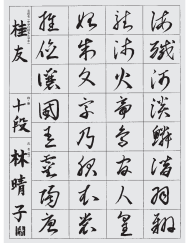 海鹹河淡鱗潛羽翔
龍師火帝鳥官人皇
始制文字乃服衣裳
推位讓國有虞陶唐
桂友 十段 林晴子